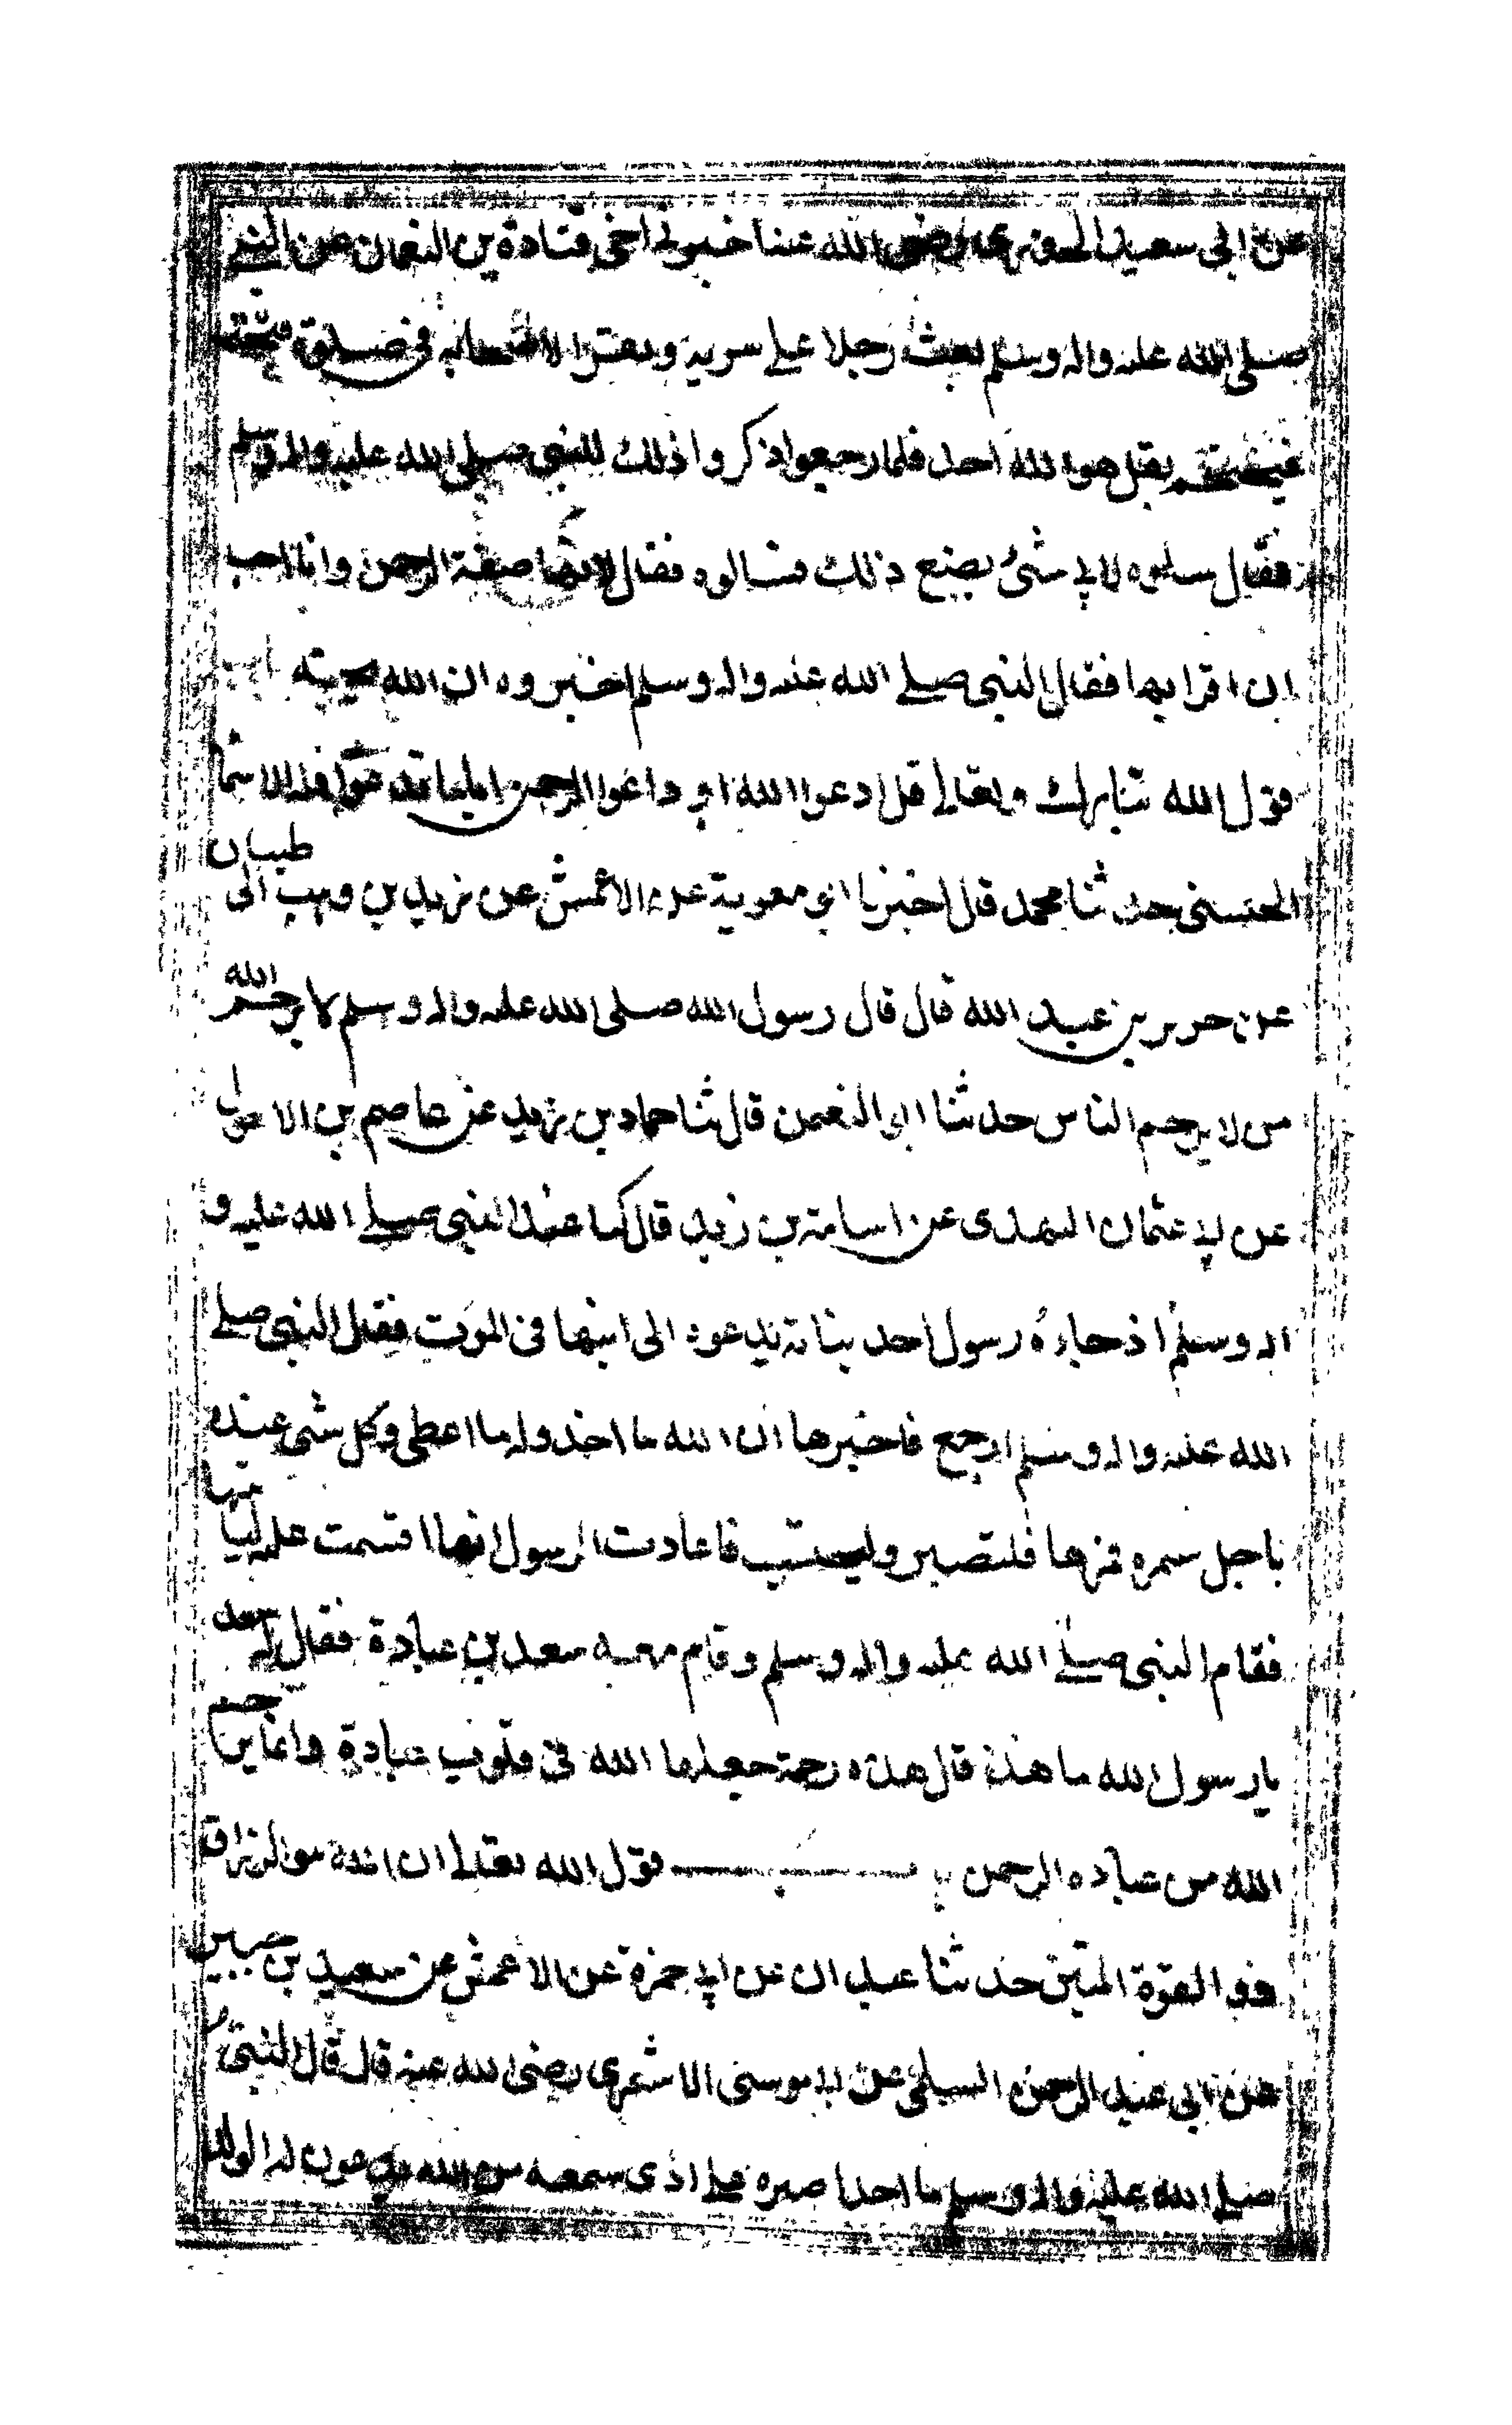 عن ابي سعيد الخدري رضي الله عنه اخبرني اخي قتادة بن النعمان عن النبي
صلى الله عليه واله وسلم بعث رجلا على سرية وبقرا لاصحابه في صلوة
فيختم بقل هو الله احد فلما رجعوا ذكروا ذلك للنبي صلى الله عليه واله وسلم
فقال سلوه لاي شئ يصنع ذلك فسالوه فقال لانها صفة الرحمن وانا احب
ان اقرا بها فقال النبي صلى الله عليه واله وسلم اخبروه ان الله يحبه
قول الله تبارك وتعالى قل ادعوا الله او داعوا الرحمن اياما تدعوا فله الاسما
الحسنى حدثنا محمد قال اخبرنا ابو معوية عن الاعمش عن زيد بن وهب ابي ظبيان
عن جرير بن عبد الله قال قال رسول الله صلى الله عليه واله وسلم لا يرحم الله
من لا يرحم الناس حدثنا ابي النعمن قال ثنا حماد بن زيد عن عاصم بن الاحول
عن ابي عثمان النهدي عن اسامة بن زيد قال كنا عند النبي صلى الله عليه و
اله وسلم اذ جاءه رسول احد بناته يدعوه الى ابنها في الموت فقال النبي صلى
الله عليه واله وسلم ارجع فاخبرها ان الله ما اخذ وله ما اعطى وكل شئ عنده
باجل سمره فمرها فلتصبر ولتحتسب فاعادت الرسول انها اقسمت عليه
فقام النبي صلى الله عليه واله وسلم وقام معه سعد بن عبادة فقال له سعد
يا رسول الله ما هذا قال هذه رحمة جعلها الله في قلوب عبادة وانما يرحم
الله من عباده الرحمن قول الله تعالى ان الله هو الرزاق
ذو القوة المتين حدثنا عبدان عن ابي حمزة عن الاعمش عن سعيد بن جبير
عن ابي عبد الرحمن السلمي عن ابي موسى الاشعري رضي الله عنه قال قال النبي
صلى الله عليه واله وسلم ما احد اصبر على اذى سمعه من الله يدعون له الولد